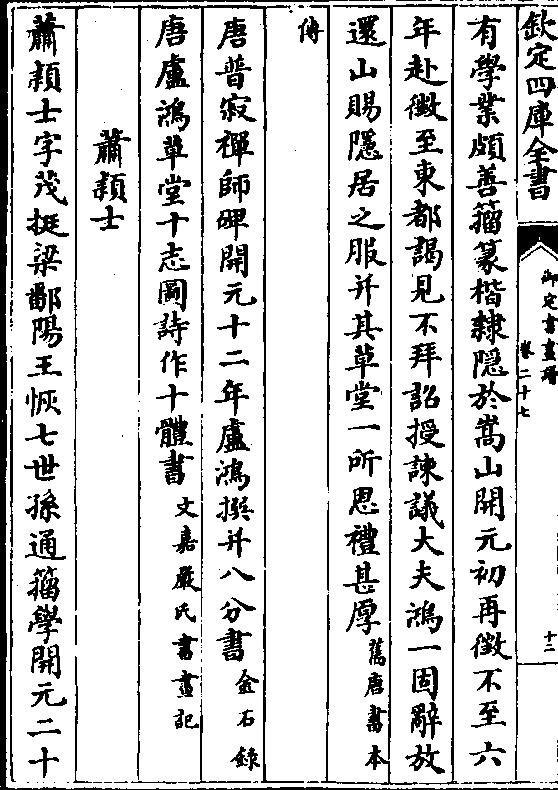 欽定四庫全書
御定書畫譜
卷二十七
十二
有學業頗善籀篆楷隸隱於嵩山開元初再徵不至六
年赴徵至東都謁見不拜詔授諫議大夫鴻一固辭放
還山賜隱居之服并其草堂一所恩禮甚厚舊唐書本
傳
唐普寂禪師碑開元十二年盧鴻撰并八分書金石錄
唐盧鴻草堂十志圖詩作十體書文嘉嚴氏書畫記
蕭頴士
蕭頴士字茂挺梁鄱陽王恢七世孫通籀學開元二十